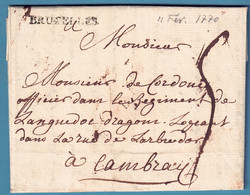 BRUXELLES
11 Fev. 1770
A
Monsieur
Monsieur de Cordoue
officier dans le Regiment de
Languedoc dragons. Logeant
dans la rue de
à Cambray